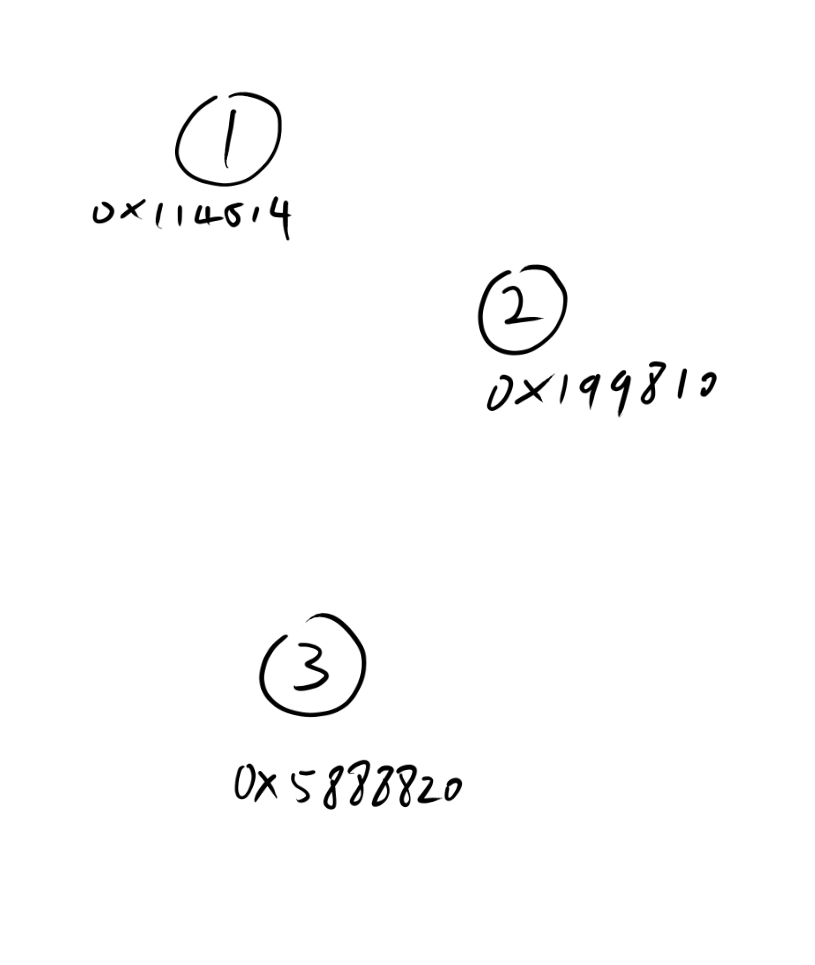 ①
0x114514
②
0x199810
③
0x5888820